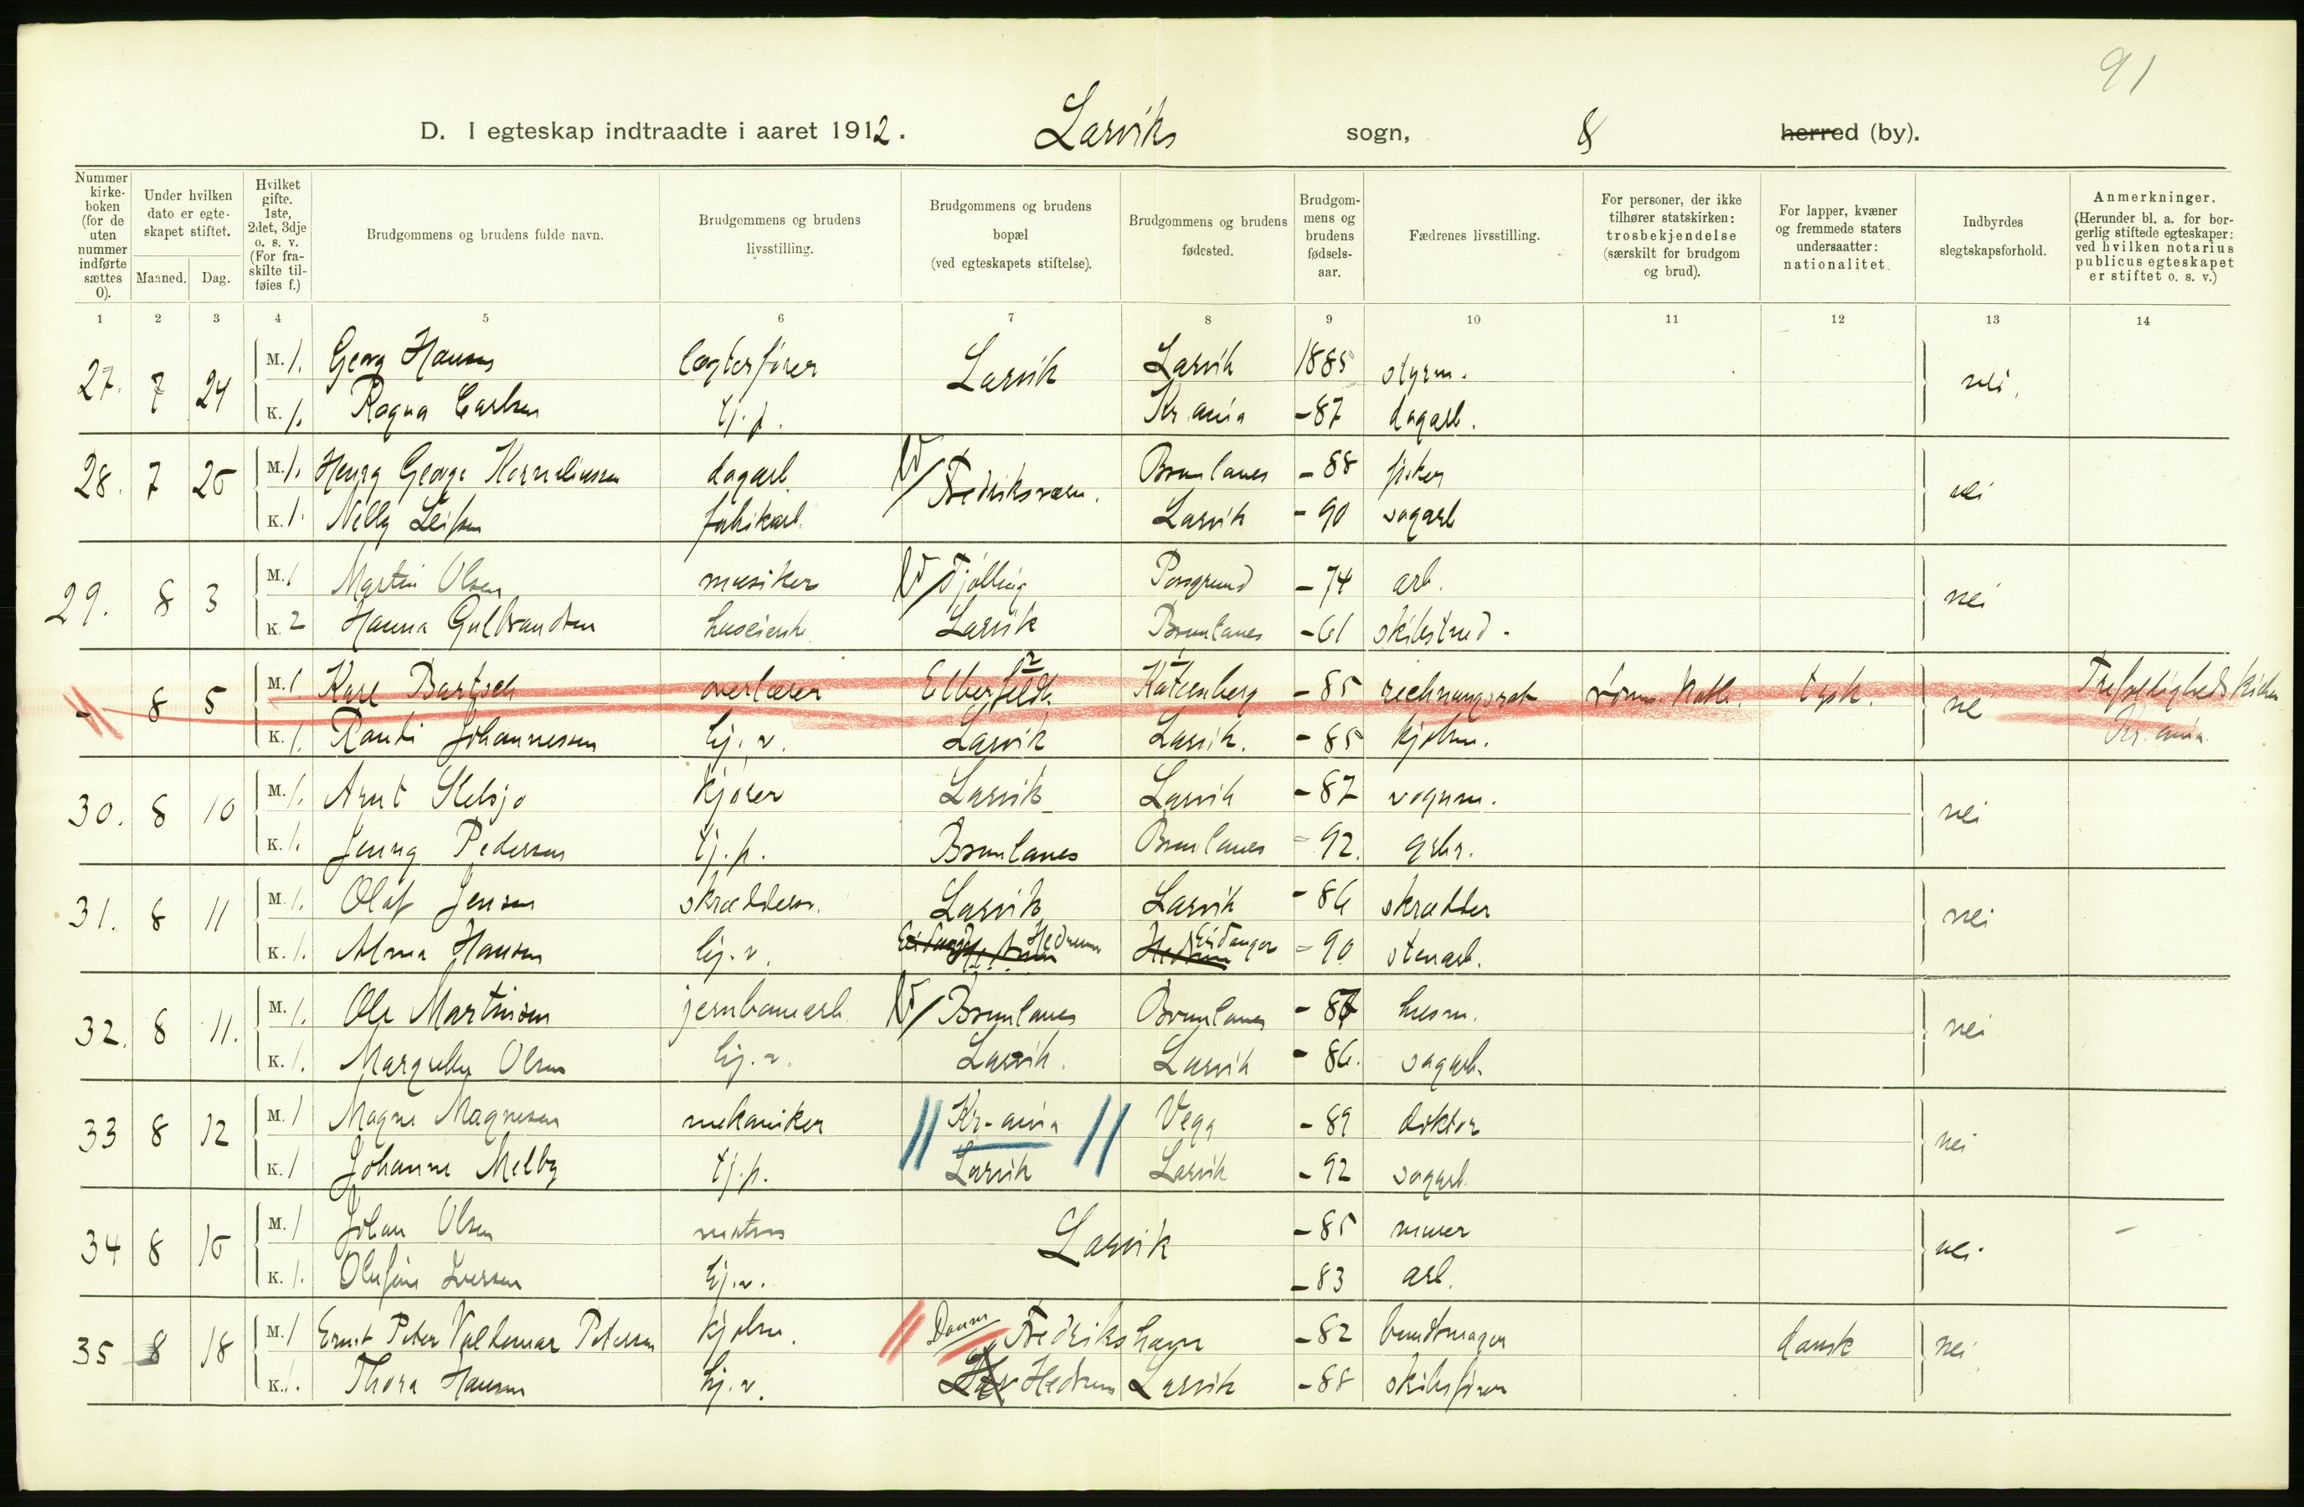 91
D. I egteskap indtraadte i aaret 1912. Larviks sogn, 8 herred (by).
Nummer kirkeboken (for de uten nummer indførte sættes 0).
Under hvilken dato er egteskapet stiftet.
Maaned. Dag.
Hvilket gifte. 1ste, 2det, 3dje o. s. v. (For fraskilte tilføies f.)
Brudgommens og brudens fulde navn.
Brudgommens og brudens livsstilling.
Brudgommens og brudens bopæl (ved egteskapets stiftelse).
Brudgommens og brudens fødested.
Brudgommens og brudens fødselsaar.
Fædrenes livsstilling.
For personer, der ikke tilhører statskirken: trosbekjendelse (særskilt for brudgom og brud).
For lapper, kvæner og fremmede staters undersaatter: nationalitet.
Indbyrdes slegtskapsforhold.
Anmerkninger. (Herunder bl. a. for borgerlig stiftede egteskaper: ved hvilken notarius publicus egteskapet er stiftet o. s. v.)
1 2 3 4 5 6 7 8 9 10 11 12 13 14
27. 7 24 M. 1. Georg Hansen lægterfører Larvik Larvik 1885 styrm. nei.
K. 1. Ragna Carlsen tj.p. Kr.ania -87 dagarb.
28. 7 25 M. 1. Henry George Korneliussen dagarb. Fredriksværn. Brunlanes -88 fisker nei
K. 1. Nelly Leifsen fabrikarb. Larvik -90 sagarb
29. 8 3 M. 1 Martin Olsen musiker Tjølling Porsgrund -74 arb. nei
K. 2 Hanna Gulbrandsen huseierske Larvik Brunlanes -61 skibstred.
- 8 5 M. 1 Karl Bartsch overlærer Elberfeldt Katzenberg -85 rechnungsrat rom. kath. tysk. nei Trefoldighedskirken
K. 1. Randi Johannessen hj.v. Larvik Larvik. -85 kjøbm. Kr.ania
30. 8 10 M. 1. Arnt Stelsjø kjører Larvik Larvik -87 vognm. nei
K. 1. Jenny Pedersen tj.p. Brunlanes Brunlanes -92. grbr.
31. 8 11 M. 1. Olaf Jensen skræddersv. Larvik Larvik -86 skrædder nei
K. 1. Alma Hansen hj.v. Eidanger Hedrum Hedrum Hedrum Eidanger -90 stenarb.
32. 8 11. M. 1. Ole Martinsen jernbanearb. Brunlanes Brunlanes -87 husm. nei
K. 1. Margrethe Olsen hj.v. Larvik. Larvik -86. sagarb.
33 8 12 M. 1 Magne Magnesen mekaniker Kr-ania Vega -89 doktor nei
K. 1 Johanne Melby tj.p. Larvik Larvik -92 sagarb.
34 8 15 M. 1 Johan Olsen matros Larvik -85 murer nei -
K. 1. Olufine Iversen hj.v. -83 arb.
35 8 18 M. 1 Ernst Peter Valdemar Petersen kjøbm. Danm Fredrikshavn -82 bundtmager dansk nei
K. 1. Thora Hansen hj.v. Lar Hedrum Larvik -88 skibsfører